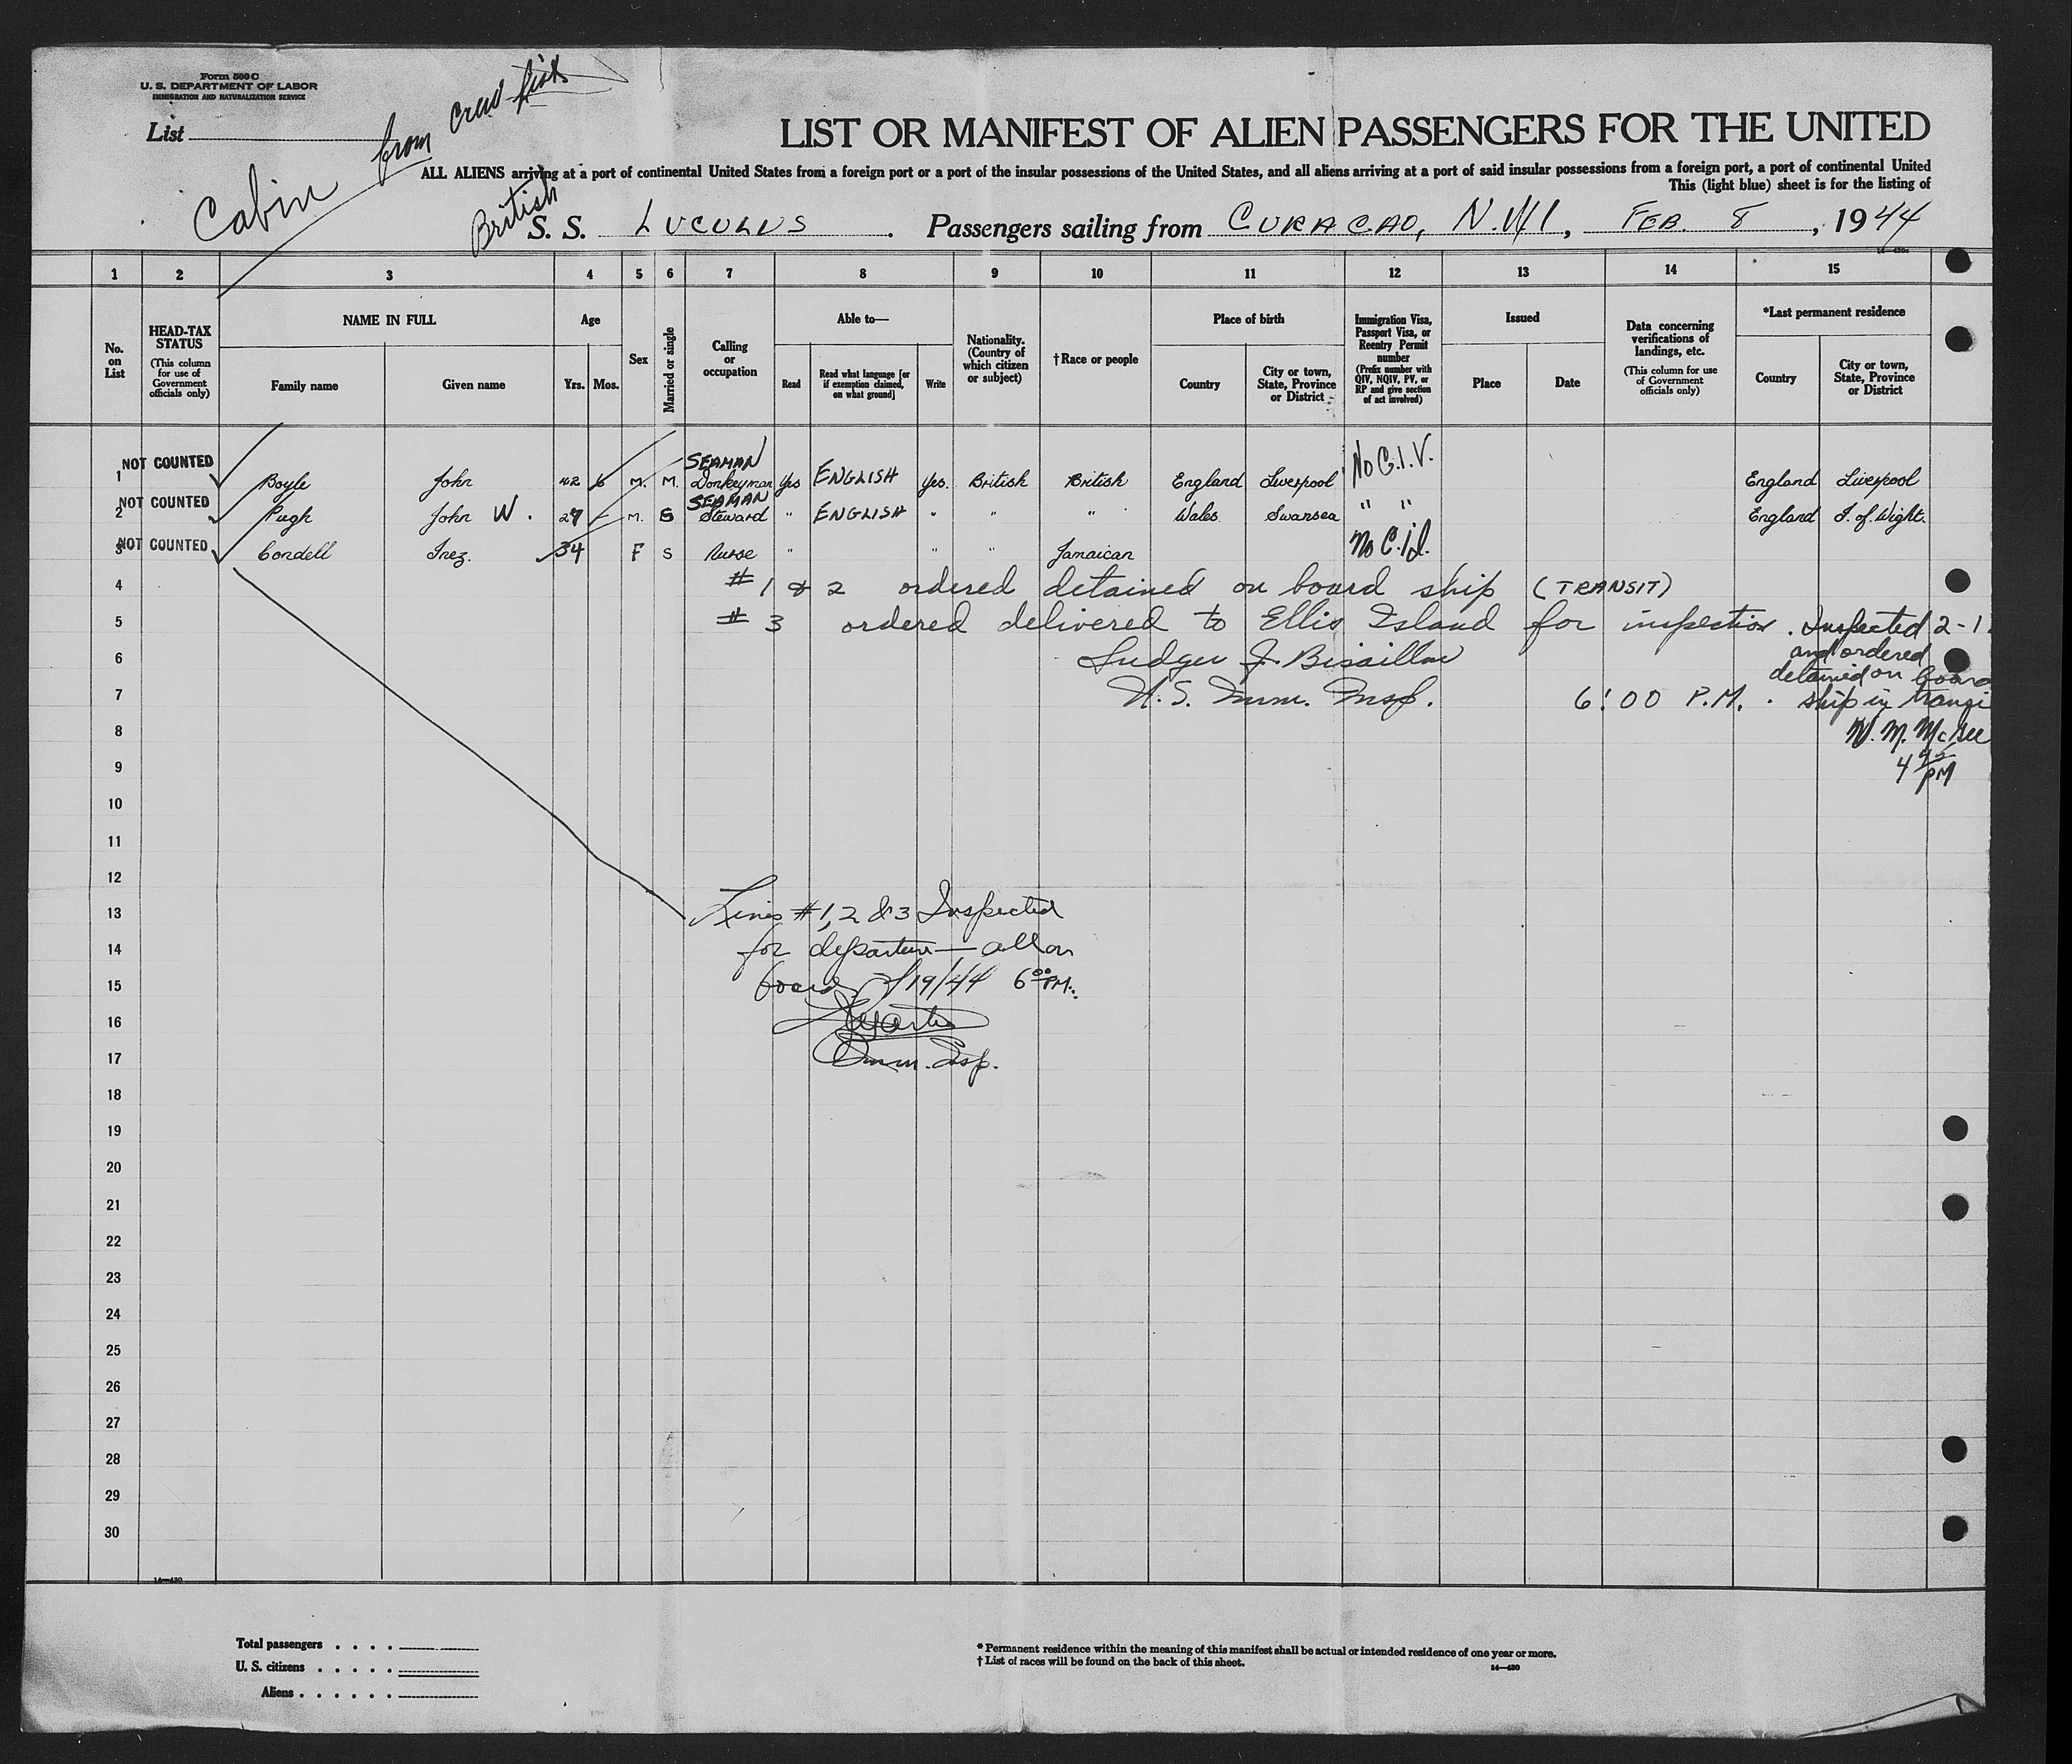 Form 500 C
U. S. DEPARTMENT OF LABOR
IMMIGRATION AND NATURALIZATION SERVICE
List
Cabin from crew list
LIST OR MANIFEST OF ALIEN PASSENGERS FOR THE UNITED
ALL ALIENS arriving at a port of continental United States from a foreign port or a port of the insular possessions of the United States, and all aliens arriving at a port of said insular possessions from a foreign port, a port of continental United
This (light blue) sheet is for the listing of
British S. S. LUCULUS . Passengers sailing from CURACAO, N.W.I, FEB. 8 , 1944
1 2 3 4 5 6 7 8 9 10 11 12 13 14 15
No. on List
HEAD-TAX STATUS
(This column for use of Government officials only)
NAME IN FULL
Family name Given name
Age
Yrs. Mos.
Sex
Married or single
Calling or occupation
Able to—
Read
Read what language [or if exemption claimed, on what ground]
Write
Nationality. (Country of which citizen or subject)
†Race or people
Place of birth
Country
City or town, State, Province or District
Immigration Visa, Passport Visa, or Reentry Permit number
(Prefix number with QIV, NQIV, PV, or RP and give section of act involved)
Issued
Place Date
Data concerning verifications of landings, etc.
(This column for use of Government officials only)
*Last permanent residence
Country
City or town, State, Province or District
NOT COUNTED SEAMAN No C.I.V.
1 Boyle John 42 6 M. M. Donkeyman Yes ENGLISH Yes. British British England Liverpool England Liverpool
NOT COUNTED SEAMAN
2 Pugh John W. 27 M. S Steward " ENGLISH " " " Wales Swansea " " England I. of Wight.
3 NOT COUNTED Condell Inez. 34 F S Nurse " " " Jamaican No C.I.
4 #1 & 2 ordered detained on board ship (TRANSIT)
5 #3 ordered delivered to Ellis Island for inspection. Inspected 2-1
6 Ludger J. Bisaillon and ordered
detained on board
7 U.S. Imm. Insp. 6:00 P.M. ship in transi
8 W. M. McGee
9 4 45 PM
10
11
12
13 Lines #1, 2 & 3 Inspected
14 for departure — all on
15 board 2/19/44 6 00 PM.
16
17 Imm. Insp.
18
19
20
21
22
23
24
25
26
27
28
29
30
14—430
Total passengers . . . .
U. S. citizens . . . . .
Aliens . . . . . .
* Permanent residence within the meaning of this manifest shall be actual or intended residence of one year or more.
† List of races will be found on the back of this sheet.
14—430